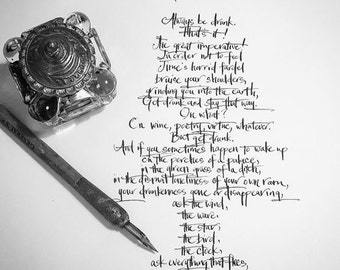 Always be drunk.
That's it!
The great imperative!
In order not to feel
Time's horrid fardel
bruise your shoulders,
grinding you into the earth,
Get drunk and stay that way.
On what?
On wine, poetry, virtue, whatever.
But get drunk.
And if you sometimes happen to wake up
on the porches of a palace,
in the green grass of a ditch,
in the dismal loneliness of your own room,
your drunkenness gone or disappearing,
ask the wind,
the wave,
the star,
the bird,
the clock,
ask everything that flees,